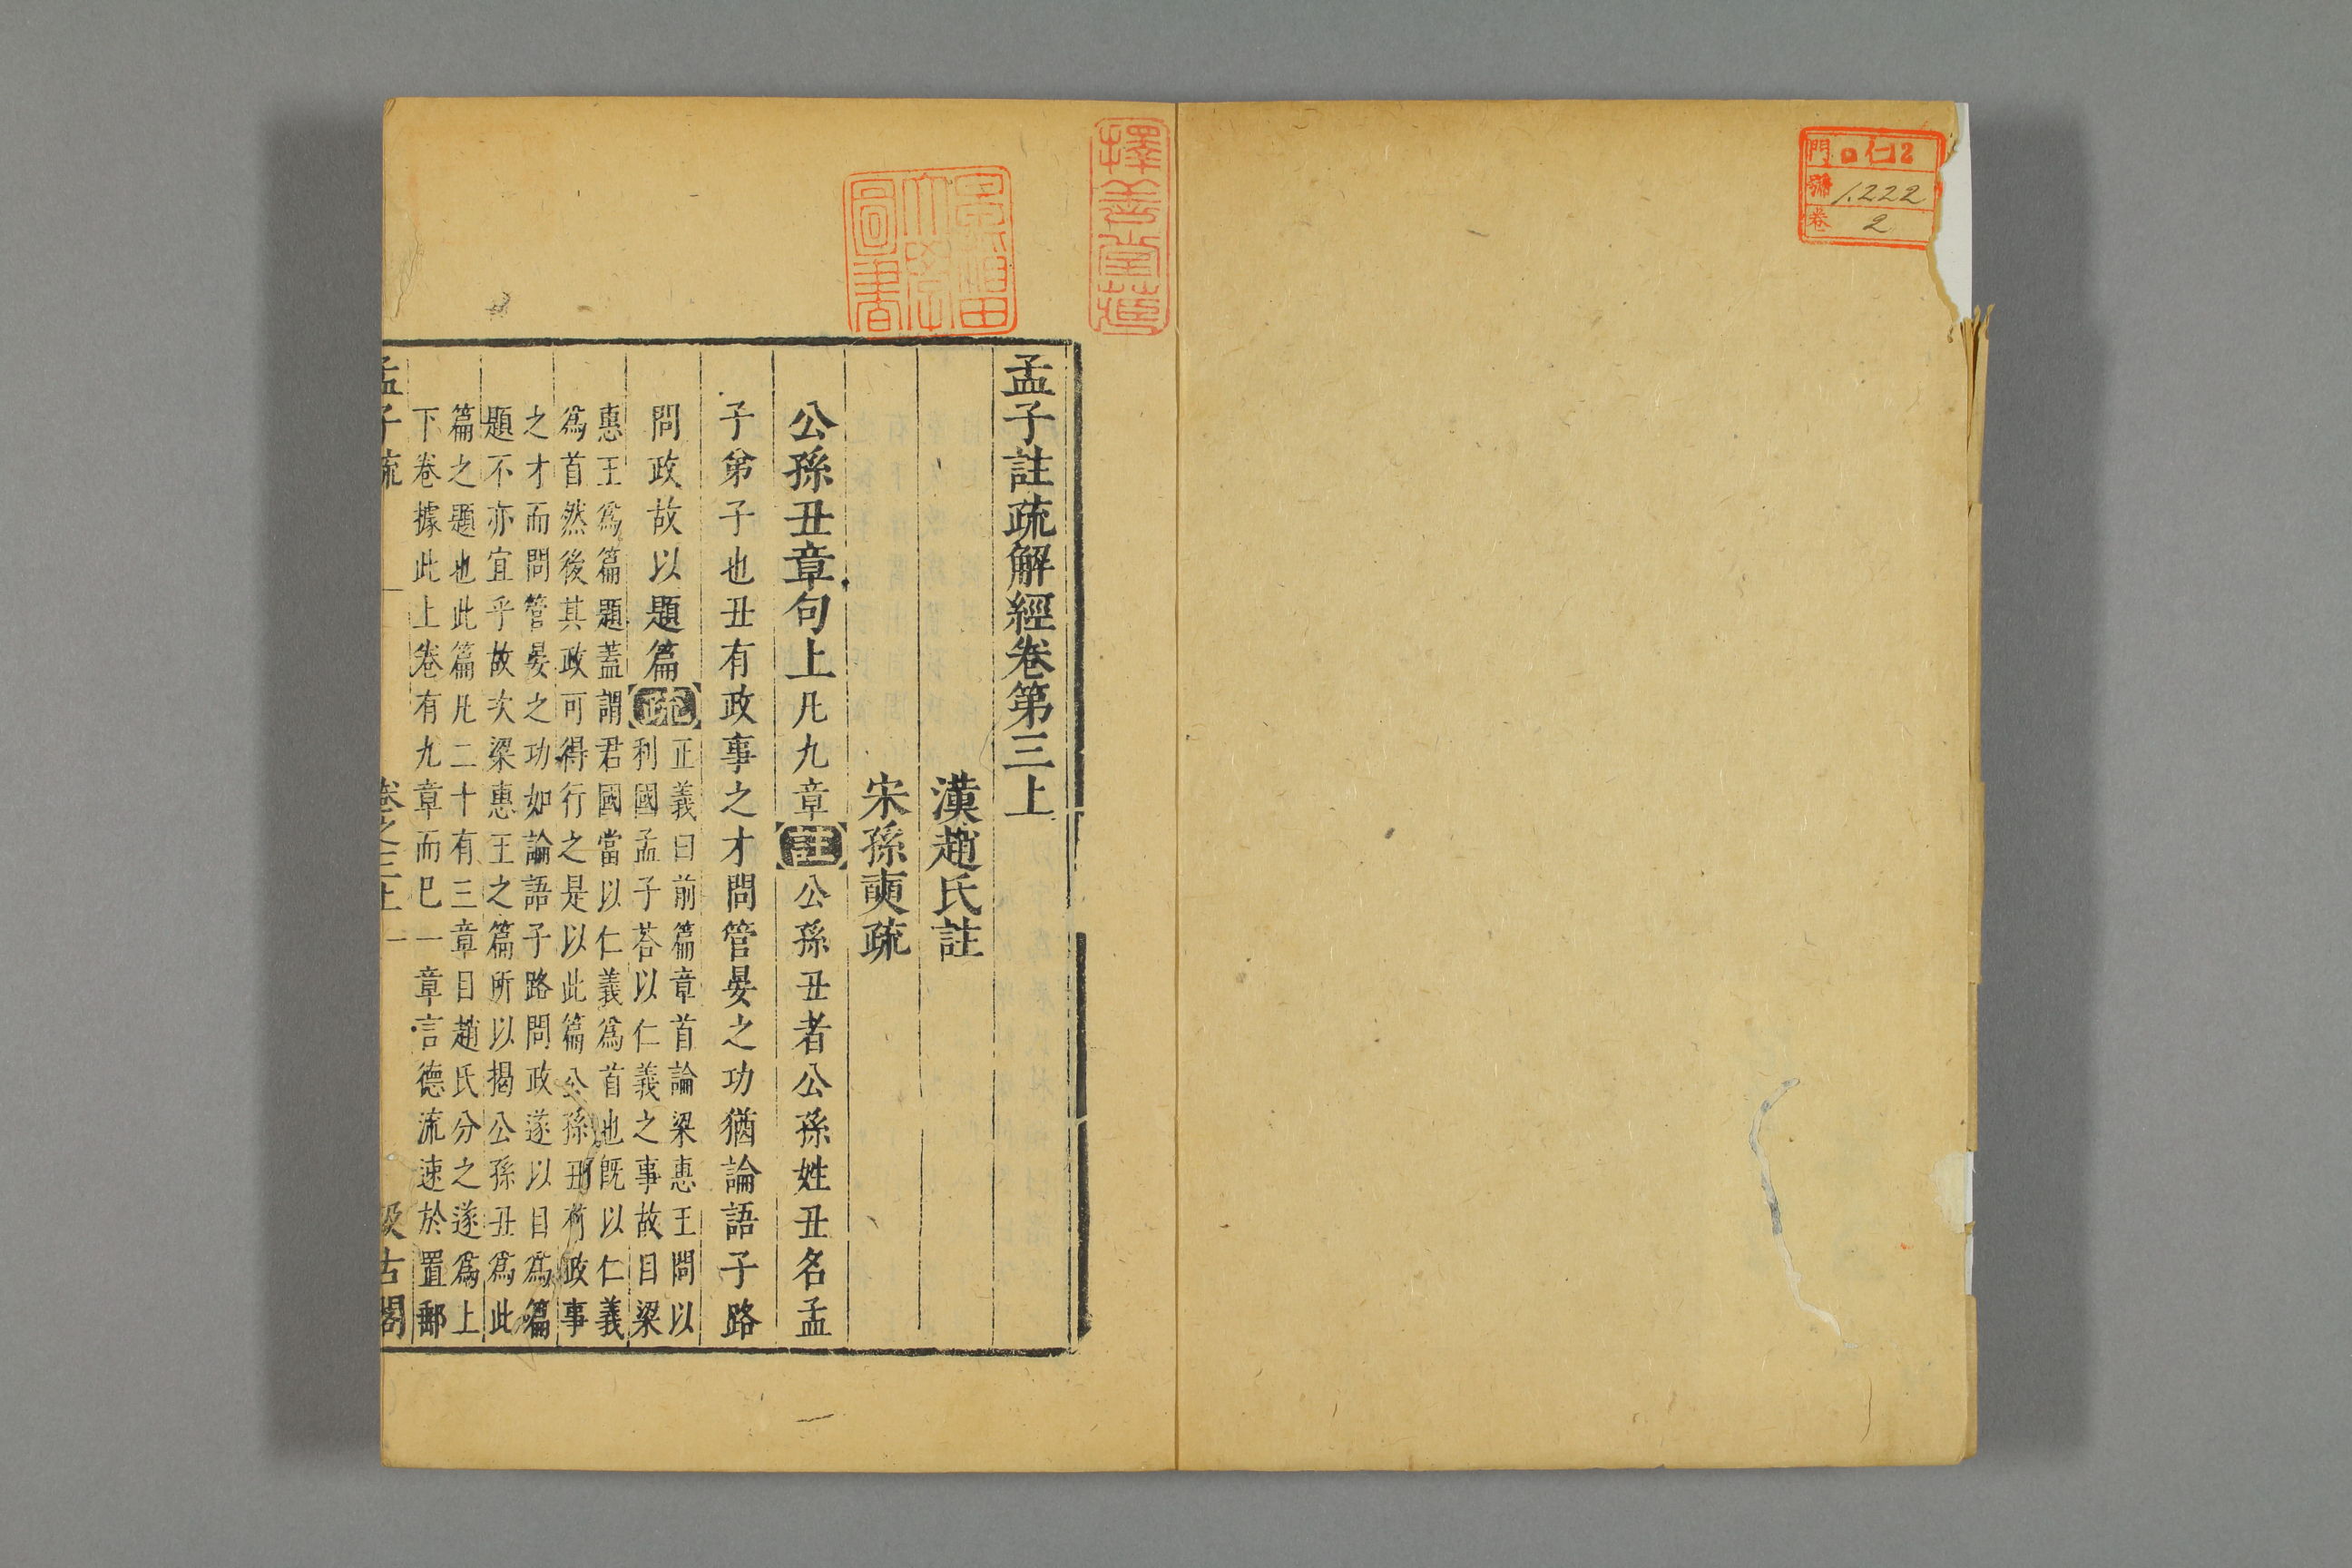 門 ロ仁2
號 1.222
卷 2
擇善堂藏
早稲田
大學
圖書
孟子註疏解經卷第三上
漢趙氏註
宋孫奭疏
公孫丑章句上凡九章註公孫丑者公孫姓丑名孟
子弟子也丑有政事之才問管晏之功猶論語子路
問政故以題篇疏正義曰前篇章首論梁惠王問以
利國孟子荅以仁義之事故目梁
惠王爲篇題蓋謂君國當以仁義爲首也旣以仁義
爲首然後其政可得行之是以此篇公孫丑有政事
之才而問管晏之功如論語子路問政遂以目爲篇
題不亦宜乎故次梁惠王之篇所以揭公孫丑爲此
篇之題也此篇凡二十有三章目趙氏分之遂爲上
下卷據此上卷有九章而已一章言德流速於置郵
孟子疏 卷之三上 一 汲古閣